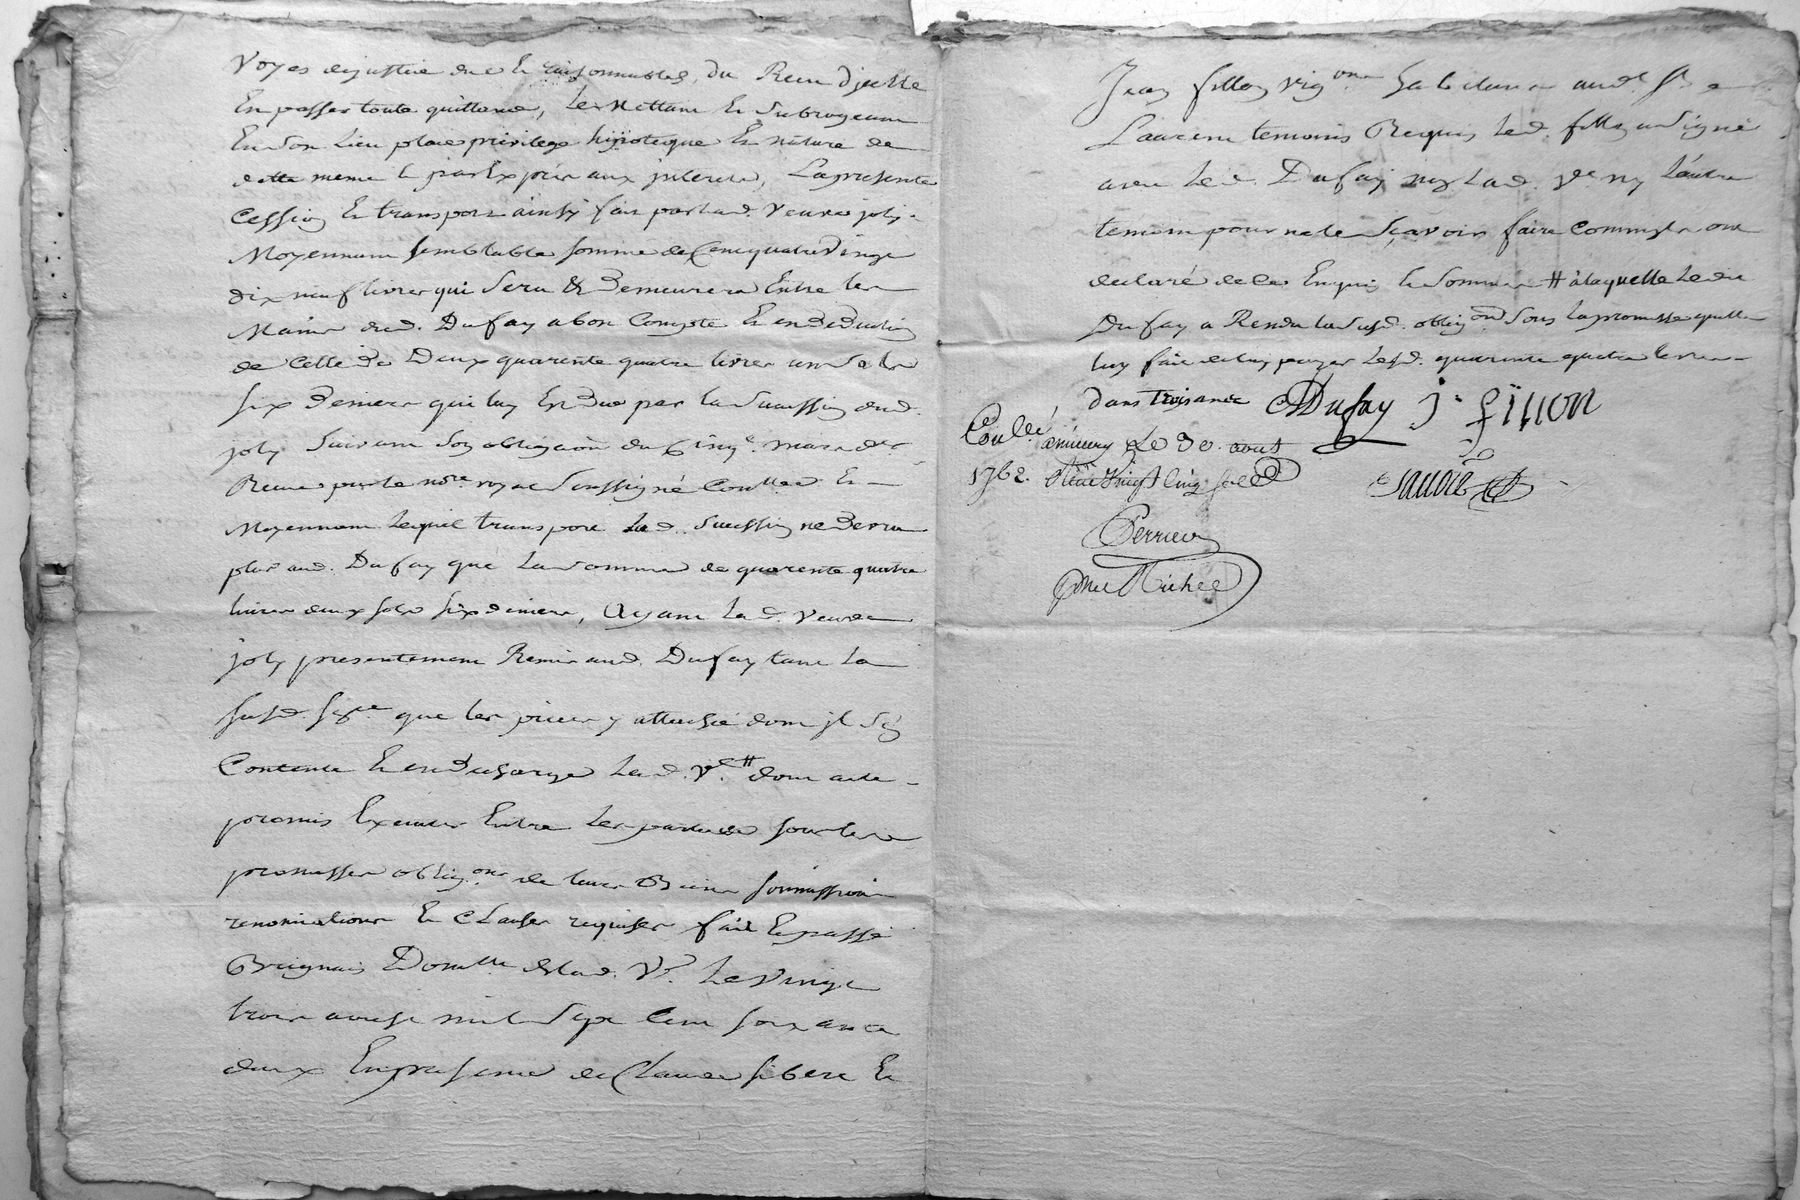 Voyes de justice due et raisonnables, du Reçu d'jcelle
En passer toute quittance, Le Mettant et Subrogeant
En Son Lieu place privilege hipoteque Et nature de
dette meme Et par Exprès aux jnterets, La presente
Cession Et transport ainsy fait par lad. Veuve joly
Moyennant semblable somme de Cent quatre Vingt
dix neuf livres qui Sera & Demeurera Entre les
Mains dud. Dufay a bon Compte Et en Deduction
de Celle de Deux quarente quatre livres un Sols
six Deniers qui luy Est Due par la Succession dud.
joly Suivant Son obligation du Cinq mars der
Reçue par le not.re royal Soussigné Con.llee Et
Moyennant Lequel transport lad. Succession ne Devra
plus aud. Dufay que La Somme de quarente quatre
livres deux sols six deniers, Ayant Lad. Veuve
joly presentement Remis aud. Dufay tant La
susd. que les pieces y attachée dont jl Se
Contente Et en Decharge Lad. V.e # dont acte
promis Executer Entre Les parties sous leurs
promesses oblig.ons de leurs Biens soumissions
renonciations Et Clauses requises fait Et passé
Brignais Domi.lle de lad. V.e Le Vingt
trois aoust mil Sept Cent soixante
deux En presence de Claude Et
Jean fillon vig.on aud. St
Laurent temoins Requis Led. fillon a Signé
avec Led. Dufay non Lad. V.e ny L'autre
temoin pour ne le Sçavoir faire Comme jls ont
declaré de ce Enquis Et Sommés # à laquelle Led.
Dufay a Rendu la Susd. oblig.on Sous La promesse qu'elle
luy fait de luy payer Lesd. quarente quatre livres
dans trois ans CDufay J. fillon
Con.llé Le 30. aoust
1762. Reçu Vingt Cinq sols
Perrier